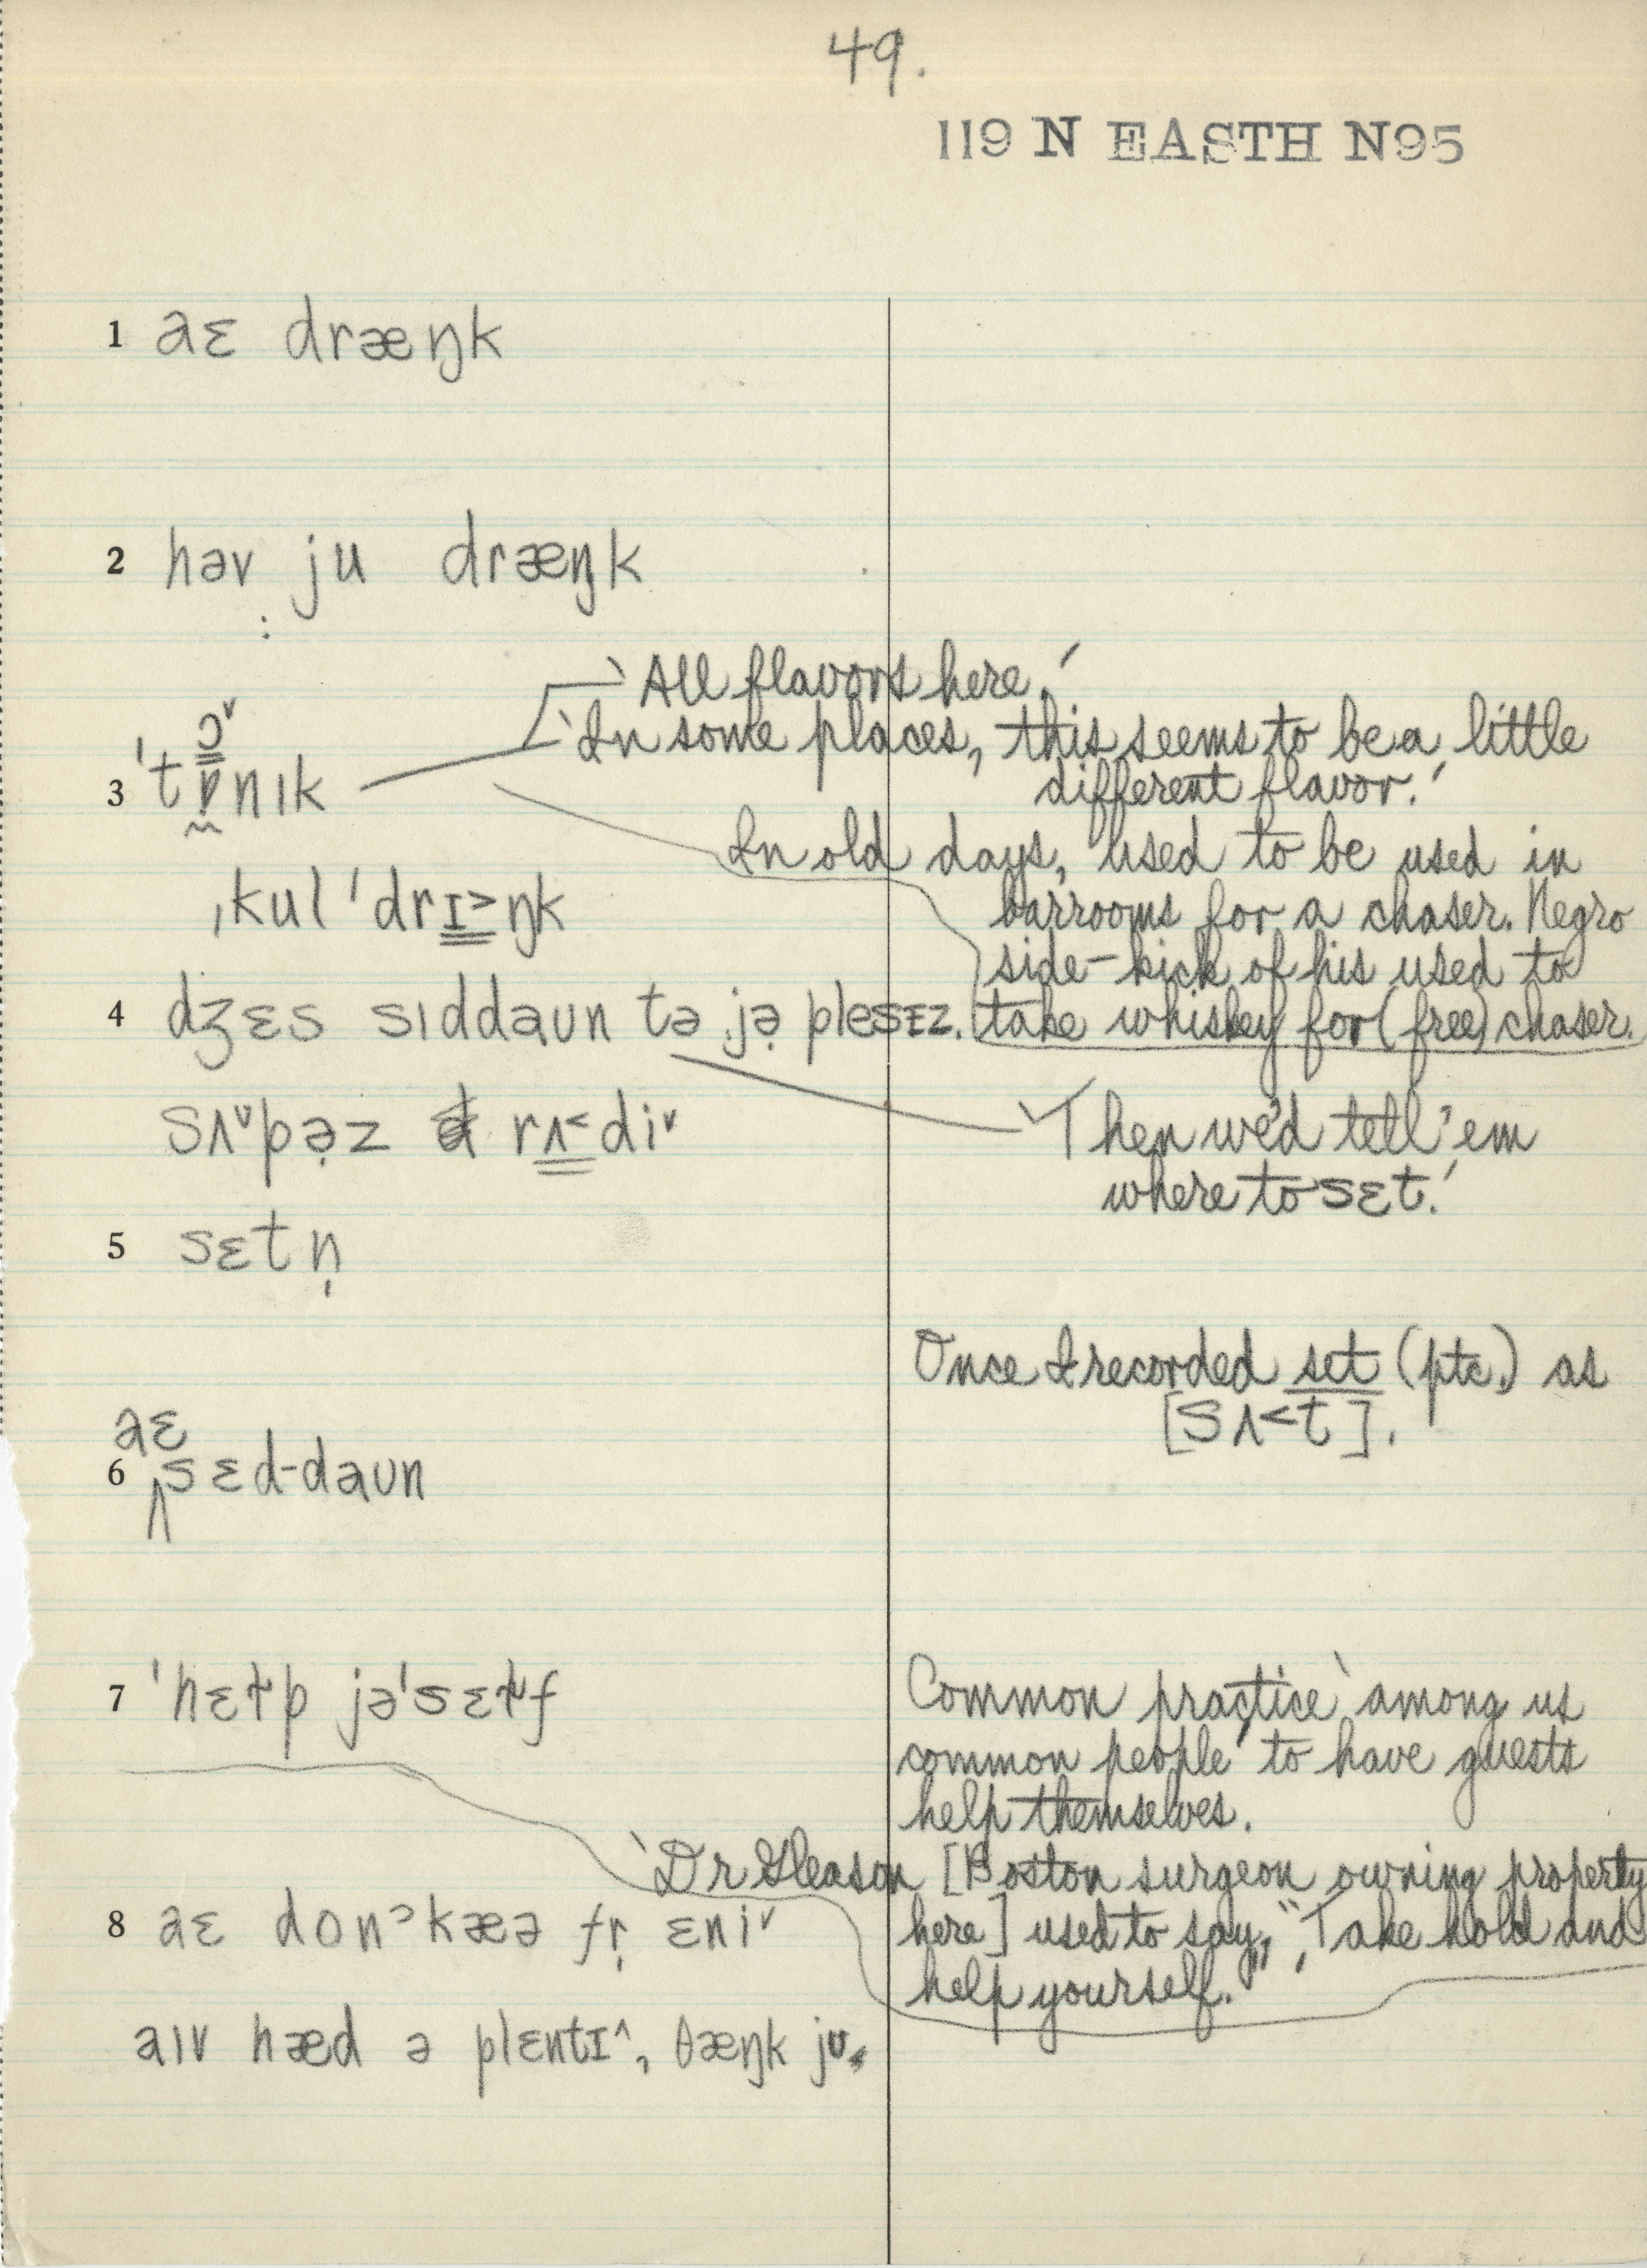 49.
119 N EASTH N95
1 aɛ dræŋk
2 həv ju dræŋk
'All flavors here.'
'In some places, this seems to be a little
different flavor.'
ɔ˅
3 ˈtɒnɪk
In old days, used to be used in
barrooms for a chaser. Negro
ˌkulˈdrɪ˃ŋk
side-kick of his used to
take whiskey for (free) chaser.
4 dʒɛs sɪddaʊn tə jə̣ plesɪz.
sʌ˅pə̣z rʌ˂di˅
'Then we'd tell 'em
where to sɛt.'
5 sɛtn̩
Once I recorded set (ptc.) as
[sʌ˂t].
aɛ
6 sɛd-daʊn
7 ˈhɛɫp jəˈsɛɫf
Common practice 'among us
common people' to have guests
help themselves.
'Dr Gleason [Boston surgeon owning property
here] used to say, "Take hold and
help yourself."'
8 aɛ donˀkæə fr̩ ɛni˅
aɪv hæd ə plɛntɪ˄, θæŋk jʊ.